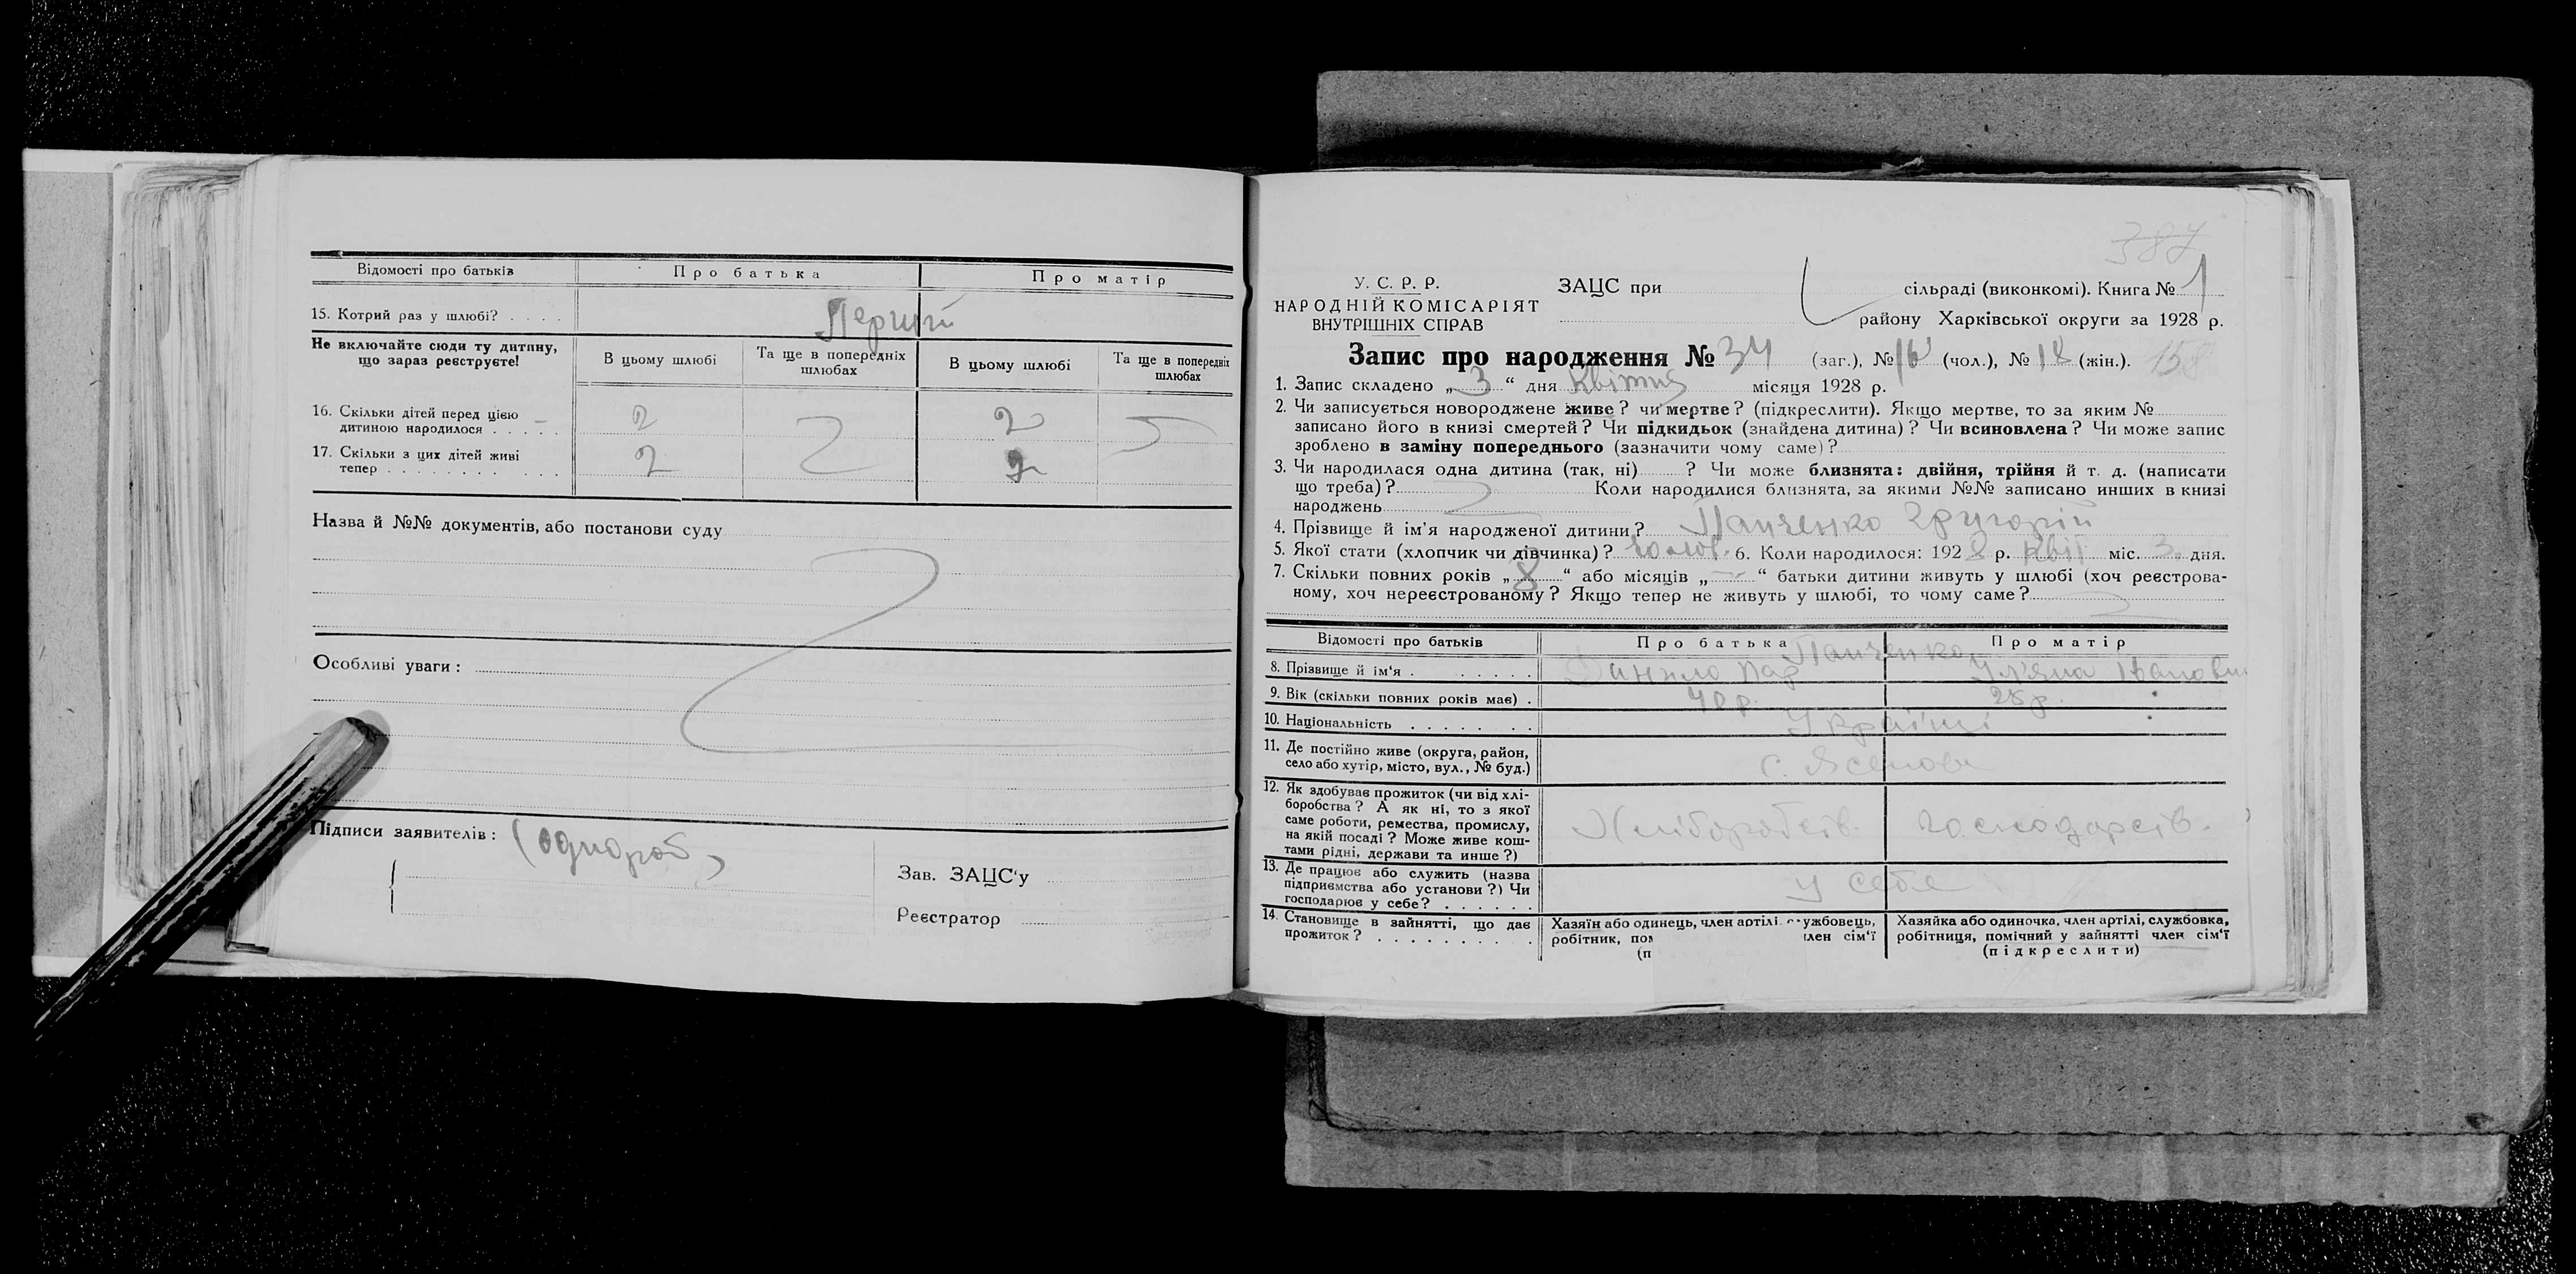 Відомості про батьків
Про батька
Про матір
15. Котрий раз у шлюбі? . . . .
Перший
Не включайте сюди ту дитину,
що зараз реєструєте!
В цьому шлюбі
Та ще в попередніх
шлюбах
В цьому шлюбі
Та ще в попередніх
шлюбах
16. Скільки дітей перед цією
дитиною народилося . . . . .
2
2
17. Скільки з цих дітей живі
тепер . . . . . . . . . . .
2
2
Назва й №№ документів, або постанови суду
Особливі уваги:
Підписи заявителів:
Зав. ЗАЦС'у
Реєстратор
387
У. С. Р. Р.
НАРОДНІЙ КОМІСАРІЯТ
ВНУТРІШНІХ СПРАВ
ЗАЦС при
сільраді (виконкомі). Книга № 1
району Харківської округи за 1928 р.
Запис про народження № 34 (заг.), № 16 (чол.), № 18 (жін.). 158
1. Запис складено „ 3 “ дня квітня місяця 1928 р.
2. Чи записується новороджене живе? чи мертве? (підкреслити). Якщо мертве, то за яким №
записано його в книзі смертей? Чи підкидьок (знайдена дитина)? Чи всиновлена? Чи може запис
зроблено в заміну попереднього (зазначити чому саме)?
3. Чи народилася одна дитина (так, ні) ? Чи може близнята: двійня, трійня й т. д. (написати
що треба)? Коли народилися близнята, за якими №№ записано инших в книзі
народжень
4. Прізвище й ім'я народженої дитини? Панченко Григорій
5. Якої стати (хлопчик чи дівчинка)? 6. Коли народилося: 1928 р. квіт міс. 3 дня.
7. Скільки повних років „ 8 “ або місяців „ — “ батьки дитини живуть у шлюбі (хоч реєстрова-
ному, хоч нереєстрованому? Якщо тепер не живуть у шлюбі, то чому саме?
Відомості про батьків
Про батька
Про матір
8. Прізвище й ім'я . . . . . . .
Панченко
Данило
Ул'яна Івановн
9. Вік (скільки повних років має) .
40 р.
28 р.
10. Національність . . . . . . .
Українці
11. Де постійно живе (округа, район,
село або хутір, місто, вул., № буд.)
12. Як здобуває прожиток (чи від хлі-
боробства? А як ні, то з якої
саме роботи, ремества, промислу,
на якій посаді? Може живе кош-
тами рідні, держави та инше?)
Хліборобств.
господарств.
13. Де працює або служить (назва
підприємства або установи?) Чи
господарює у себе? . . . . . .
у себе
14. Становище в зайнятті, що дає
прожиток? . . . . . . . . . .
Хазяїн або одинець, член артілі, службовець,
робітник, пом лен сім'ї
(п
Хазяйка або одиночка, член артілі, службовка,
робітниця, помічний у зайнятті член сім'ї
(підкреслити)